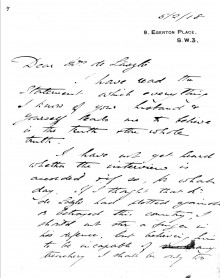 6/3/18
8. EGERTON PLACE.
S.W.3.
Dear Mrs de Laszlo
I have read the
Statement which everything
I know of your husband &
yourself leads me to believe
is the truth & the whole
truth.
I have not yet heard
whether the interview is
accorded & if so, for what
day. If I thought that Mr
de Laszlo had plotted against
or betrayed this country, I
should not stir a finger in
his defence, but believing him
to be incapable of
treachery I shall be only too